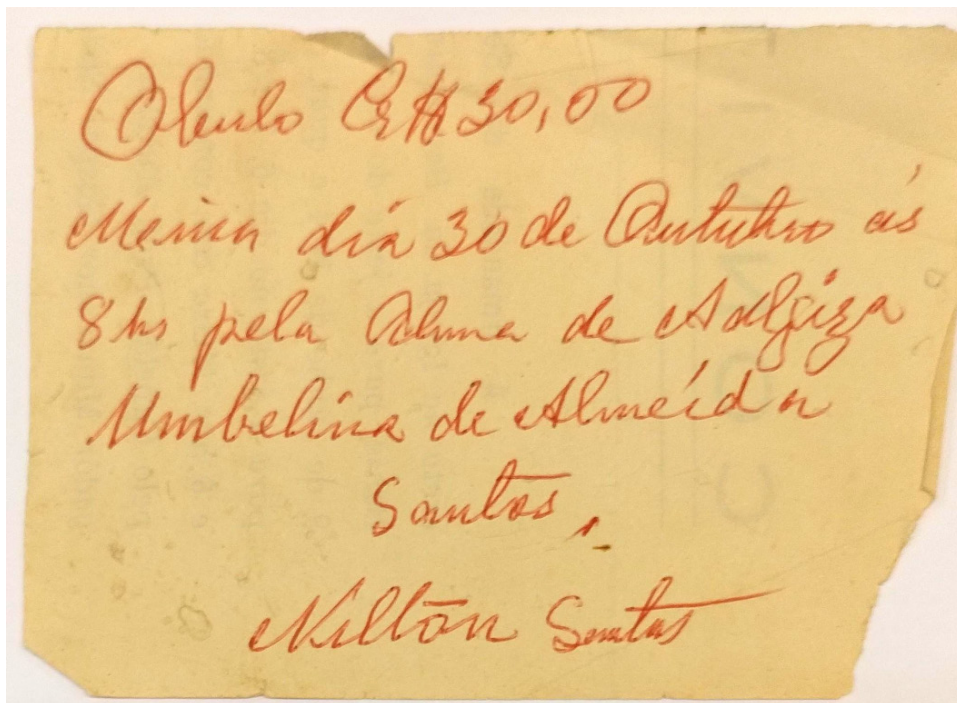 Obulo Cr$ 30,00
Missa dia 30 de Outubro ás
8 hs pela Alma de Adalgiza
Umbelina de Almeida
Santos,
Nilton Santos